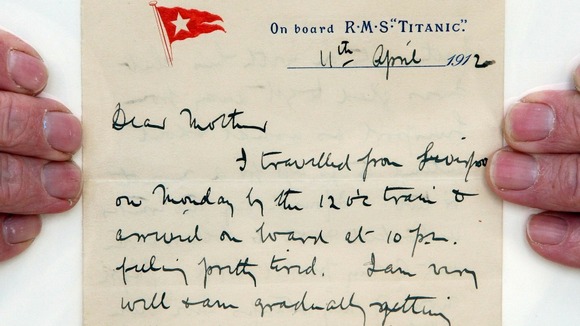 On board R·M·S·"TITANIC".
11th April 1912
Dear Mother
I travelled from Liverpoo
on Monday by the 12 o'c train &
arrived on board at 10 p.m.
feeling pretty tired. I am very
well & am gradually getting